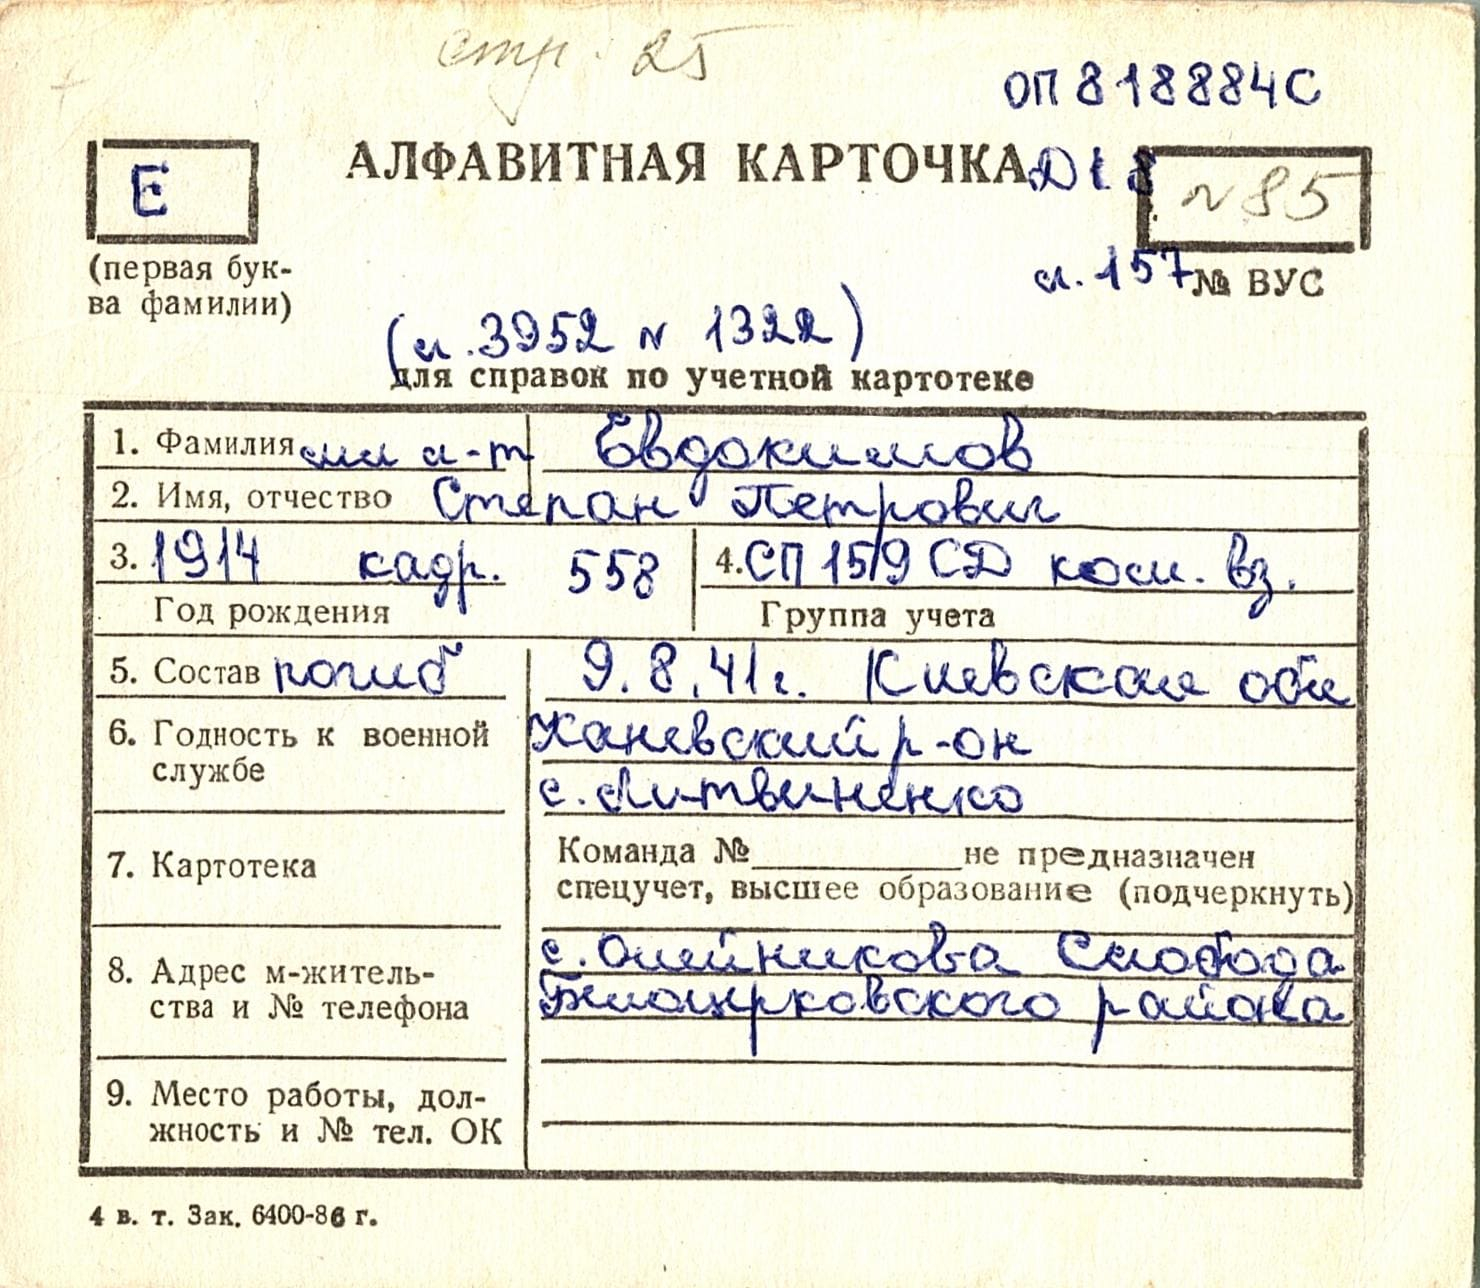 стр. 25
ОП 818884С
Е
АЛФАВИТНАЯ КАРТОЧКА
Д 1 8
N 85
(первая бук-
ва фамилии)
л. 157
№ ВУС
(л. 3952 N 1322)
для справок по учетной картотеке
1. Фамилия мл л-т Евдокимов
2. Имя, отчество Степан Петрович
3. 1914 кадр. 558
4. СП 159 СД ком. вз.
Год рождения
Группа учета
5. Состав погиб 9.8.41г. Киевская обл
6. Годность к военной
службе
Каневский р-он
с. Литвиненко
7. Картотека
Команда № не предназначен
спецучет, высшее образование (подчеркнуть)
8. Адрес м-житель-
ства и № телефона
с. Олейникова Слобода
Белоцерковского района
9. Место работы, дол-
жность и № тел. ОК
4 в. т. Зак. 6400-86 г.